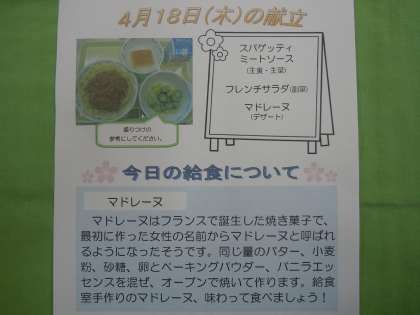 4月18日(木)の献立
スパゲッティ
ミートソース
(主食・主菜)
フレンチサラダ(副菜)
マドレーヌ
(デザート)
盛りつけの
参考にしてください。
今日の給食について
マドレーヌ
マドレーヌはフランスで誕生した焼き菓子で、
最初に作った女性の名前からマドレーヌと呼ばれ
るようになったそうです。同じ量のバター、小麦
粉、砂糖、卵とベーキングパウダー、バニラエッ
センスを混ぜ、オーブンで焼いて作ります。給食
室手作りのマドレーヌ、味わって食べましょう！